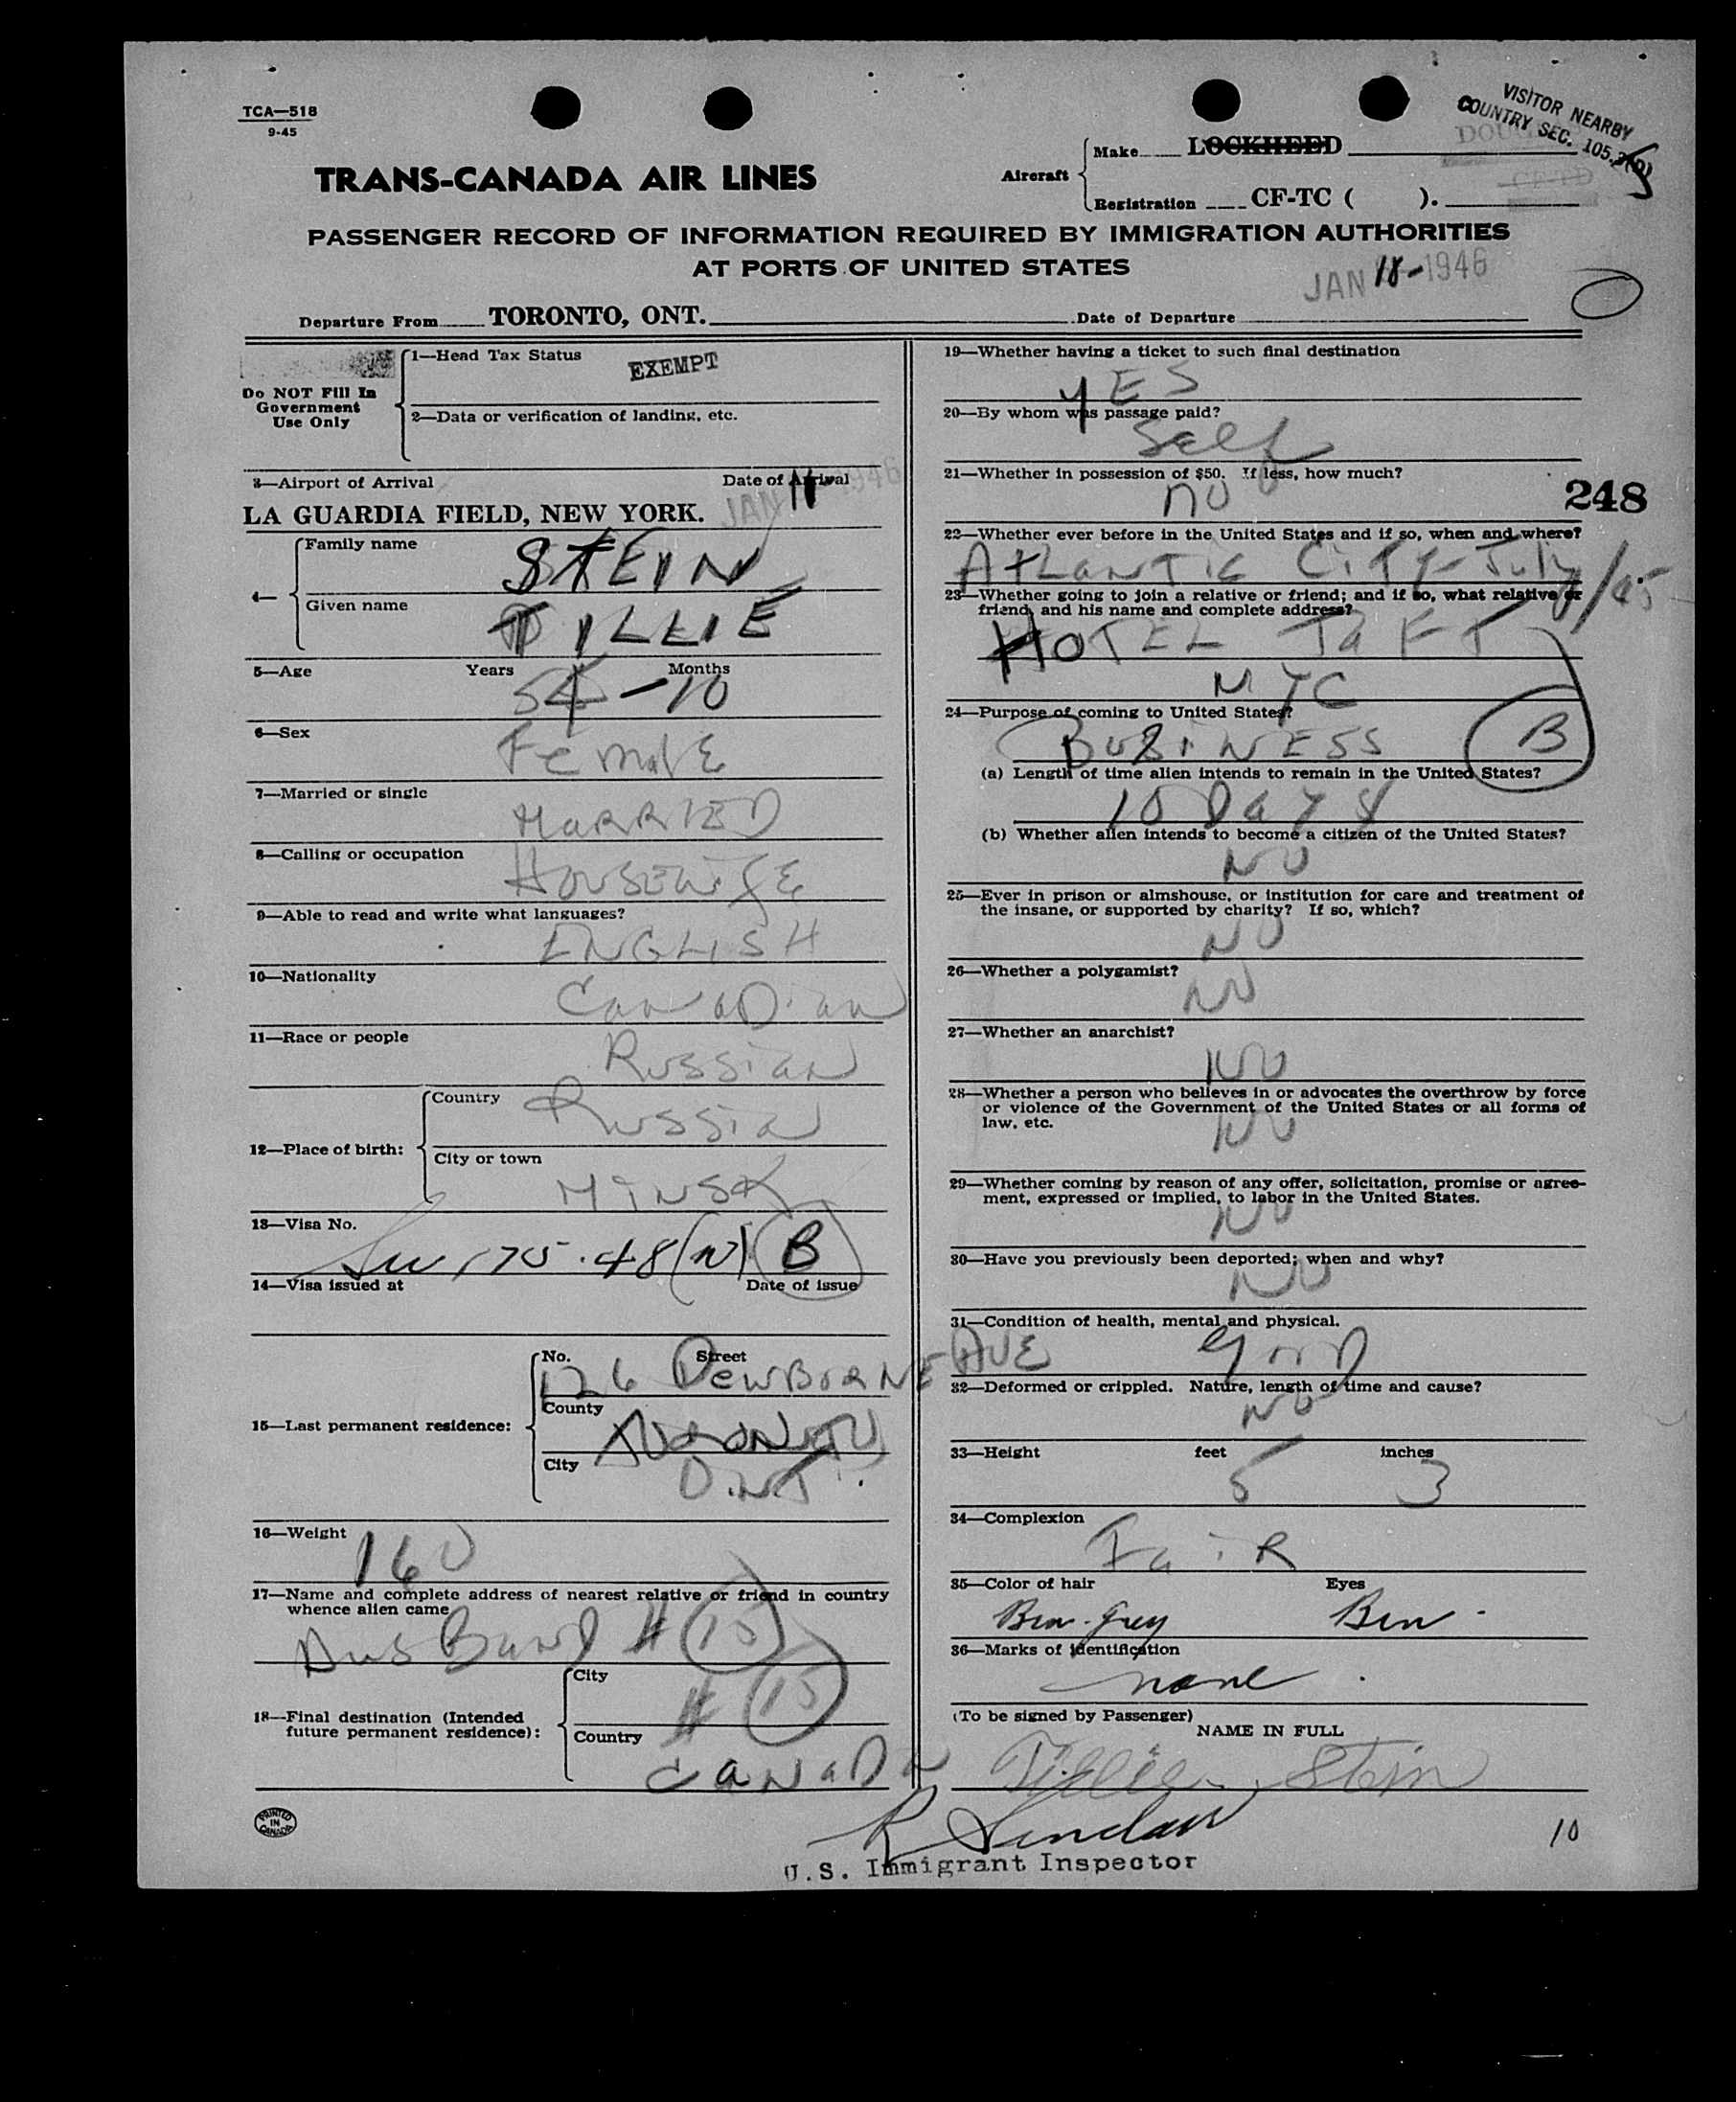 TCA—518
9-45
VISITOR NEARBY
COUNTRY SEC. 105.3(B)
TRANS-CANADA AIR LINES
Aircraft
Make LOCKHEED
Registration CF-TC ( ).
PASSENGER RECORD OF INFORMATION REQUIRED BY IMMIGRATION AUTHORITIES
AT PORTS OF UNITED STATES
JAN 18-1946
Departure From TORONTO, ONT. Date of Departure
Do NOT Fill In
Government
Use Only
1—Head Tax Status EXEMPT
2—Data or verification of landing, etc.
3—Airport of Arrival Date of Arrival
LA GUARDIA FIELD, NEW YORK. JAN 1946
4—
Family name STEIN
Given name TILLIE
5—Age Years Months
54-10
6—Sex
Female
7—Married or single
MARRIED
8—Calling or occupation
HOUSEWIFE
9—Able to read and write what languages?
ENGLISH
10—Nationality
Canadian
11—Race or people
Russian
12—Place of birth:
Country
Russia
City or town
MINSK
13—Visa No.
175.48(N) B
14—Visa issued at Date of issue
15—Last permanent residence:
No. Street
126 DewBorNE AVE
County
TORONTO
City
ONT.
16—Weight
160
17—Name and complete address of nearest relative or friend in country
whence alien came
HusBand # 15
18—Final destination (Intended
future permanent residence):
City
# 15
Country
CANADA
PRINTED
IN
CANADA
19—Whether having a ticket to such final destination
YES
20—By whom was passage paid?
Self
21—Whether in possession of $50. If less, how much?
no
248
22—Whether ever before in the United States and if so, when and where?
ATLANTIC CITY - July/45
23—Whether going to join a relative or friend; and if so, what relative or
friend, and his name and complete address?
HOTEL TAFT
NYC
24—Purpose of coming to United States?
BUSINESS B
(a) Length of time alien intends to remain in the United States?
10 Days
(b) Whether alien intends to become a citizen of the United States?
NO
25—Ever in prison or almshouse, or institution for care and treatment of
the insane, or supported by charity? If so, which?
NO
26—Whether a polygamist?
NO
27—Whether an anarchist?
NO
28—Whether a person who believes in or advocates the overthrow by force
or violence of the Government of the United States or all forms of
law, etc.
NO
29—Whether coming by reason of any offer, solicitation, promise or agree-
ment, expressed or implied, to labor in the United States.
NO
30—Have you previously been deported; when and why?
NO
31—Condition of health, mental and physical.
good
32—Deformed or crippled. Nature, length of time and cause?
NO
33—Height feet inches
5 3
34—Complexion
Fair
35—Color of hair Eyes
Brn-Grey Brn
36—Marks of identification
none
(To be signed by Passenger)
NAME IN FULL
Tillie Stein
R Sinclair
U.S. Immigrant Inspector
10